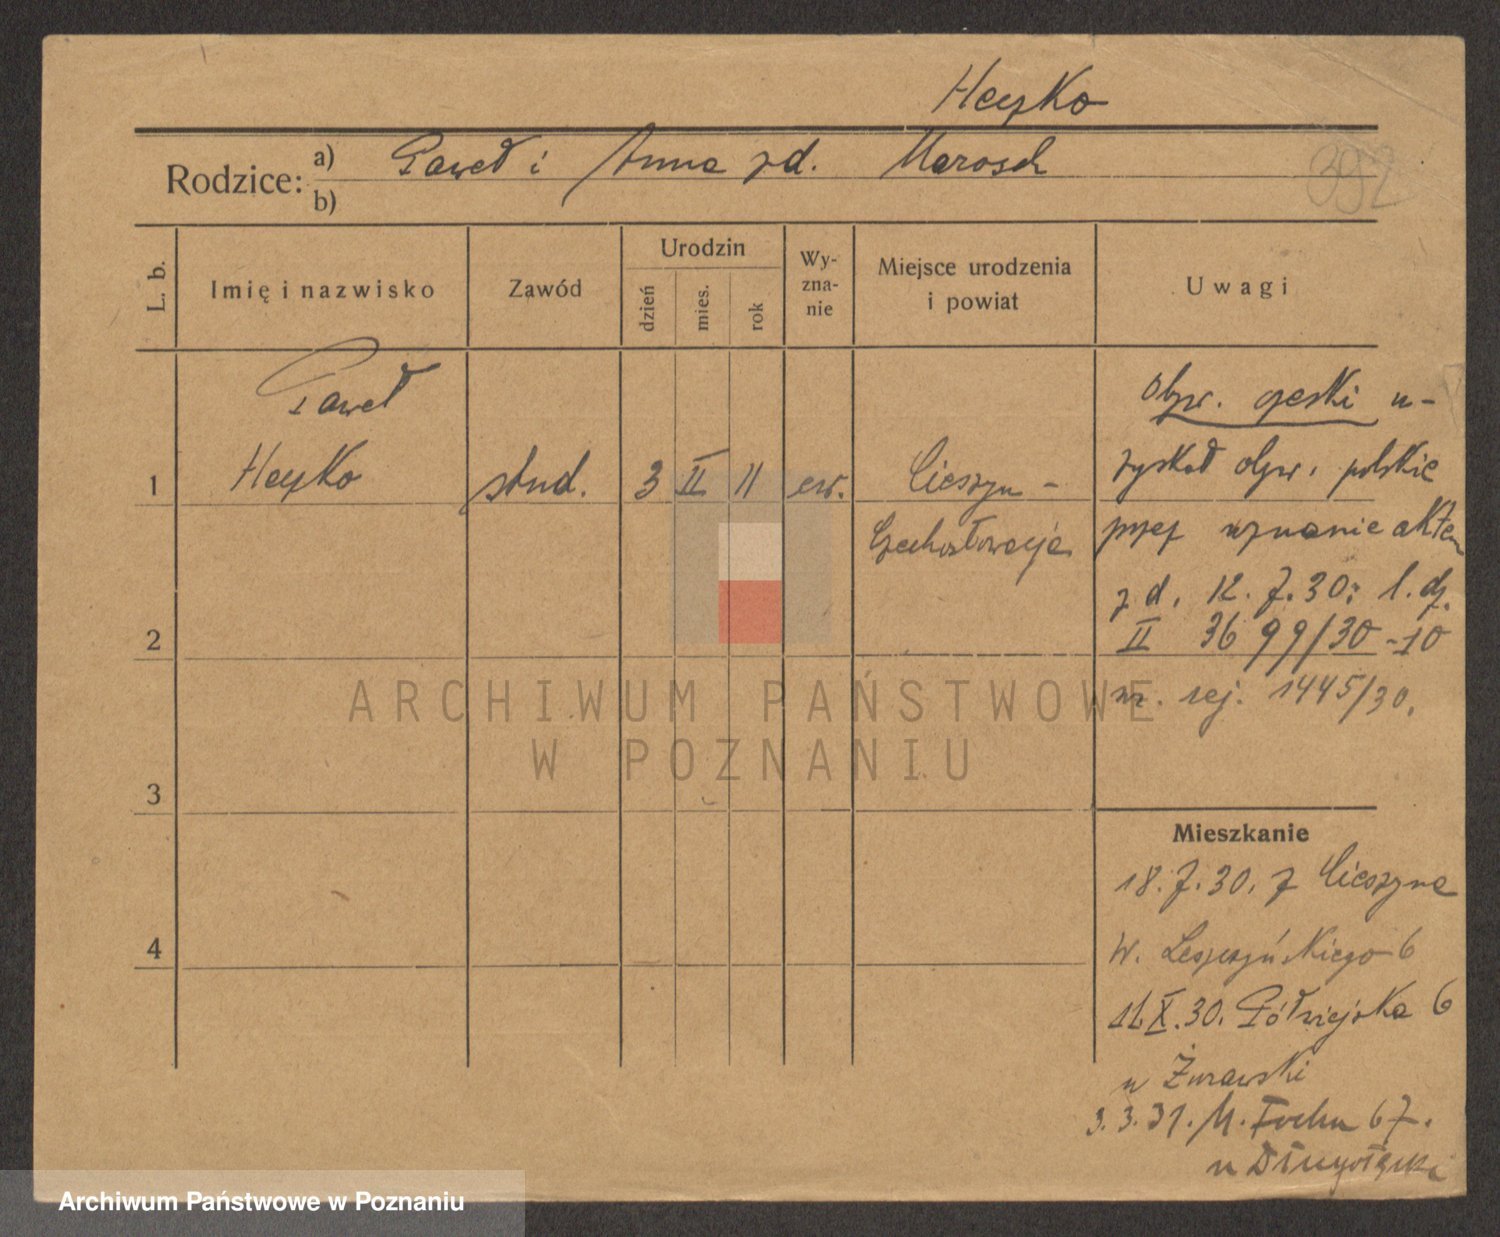 Heyko
Rodzice: a) Paweł i Anna zd. Marosch
b)
392
L. b.
Imię i nazwisko
Zawód
Urodzin
dzień
mies.
rok
Wy-
zna-
nie
Miejsce urodzenia
i powiat
Uwagi
Paweł
1 Heyko stud. 3 II 11 ew. Cieszyn -
Czechosłowacja
2
3
4
Obyw. czeski u-
zyskał obyw. polskie
przez uznanie aktem
z d. 12. 7. 30. l. dz.
II 3699/30 -10
nr. rej. 1445/30.
Mieszkanie
18. 7. 30. z Cieszyna
W. Leszczyńskiego 6
11. X. 30. Półwiejska 6
u Żurawski
3. 3. 31. M. Focha 67.
u
ARCHIWUM PAŃSTWOWE
W POZNANIU
Archiwum Państwowe w Poznaniu